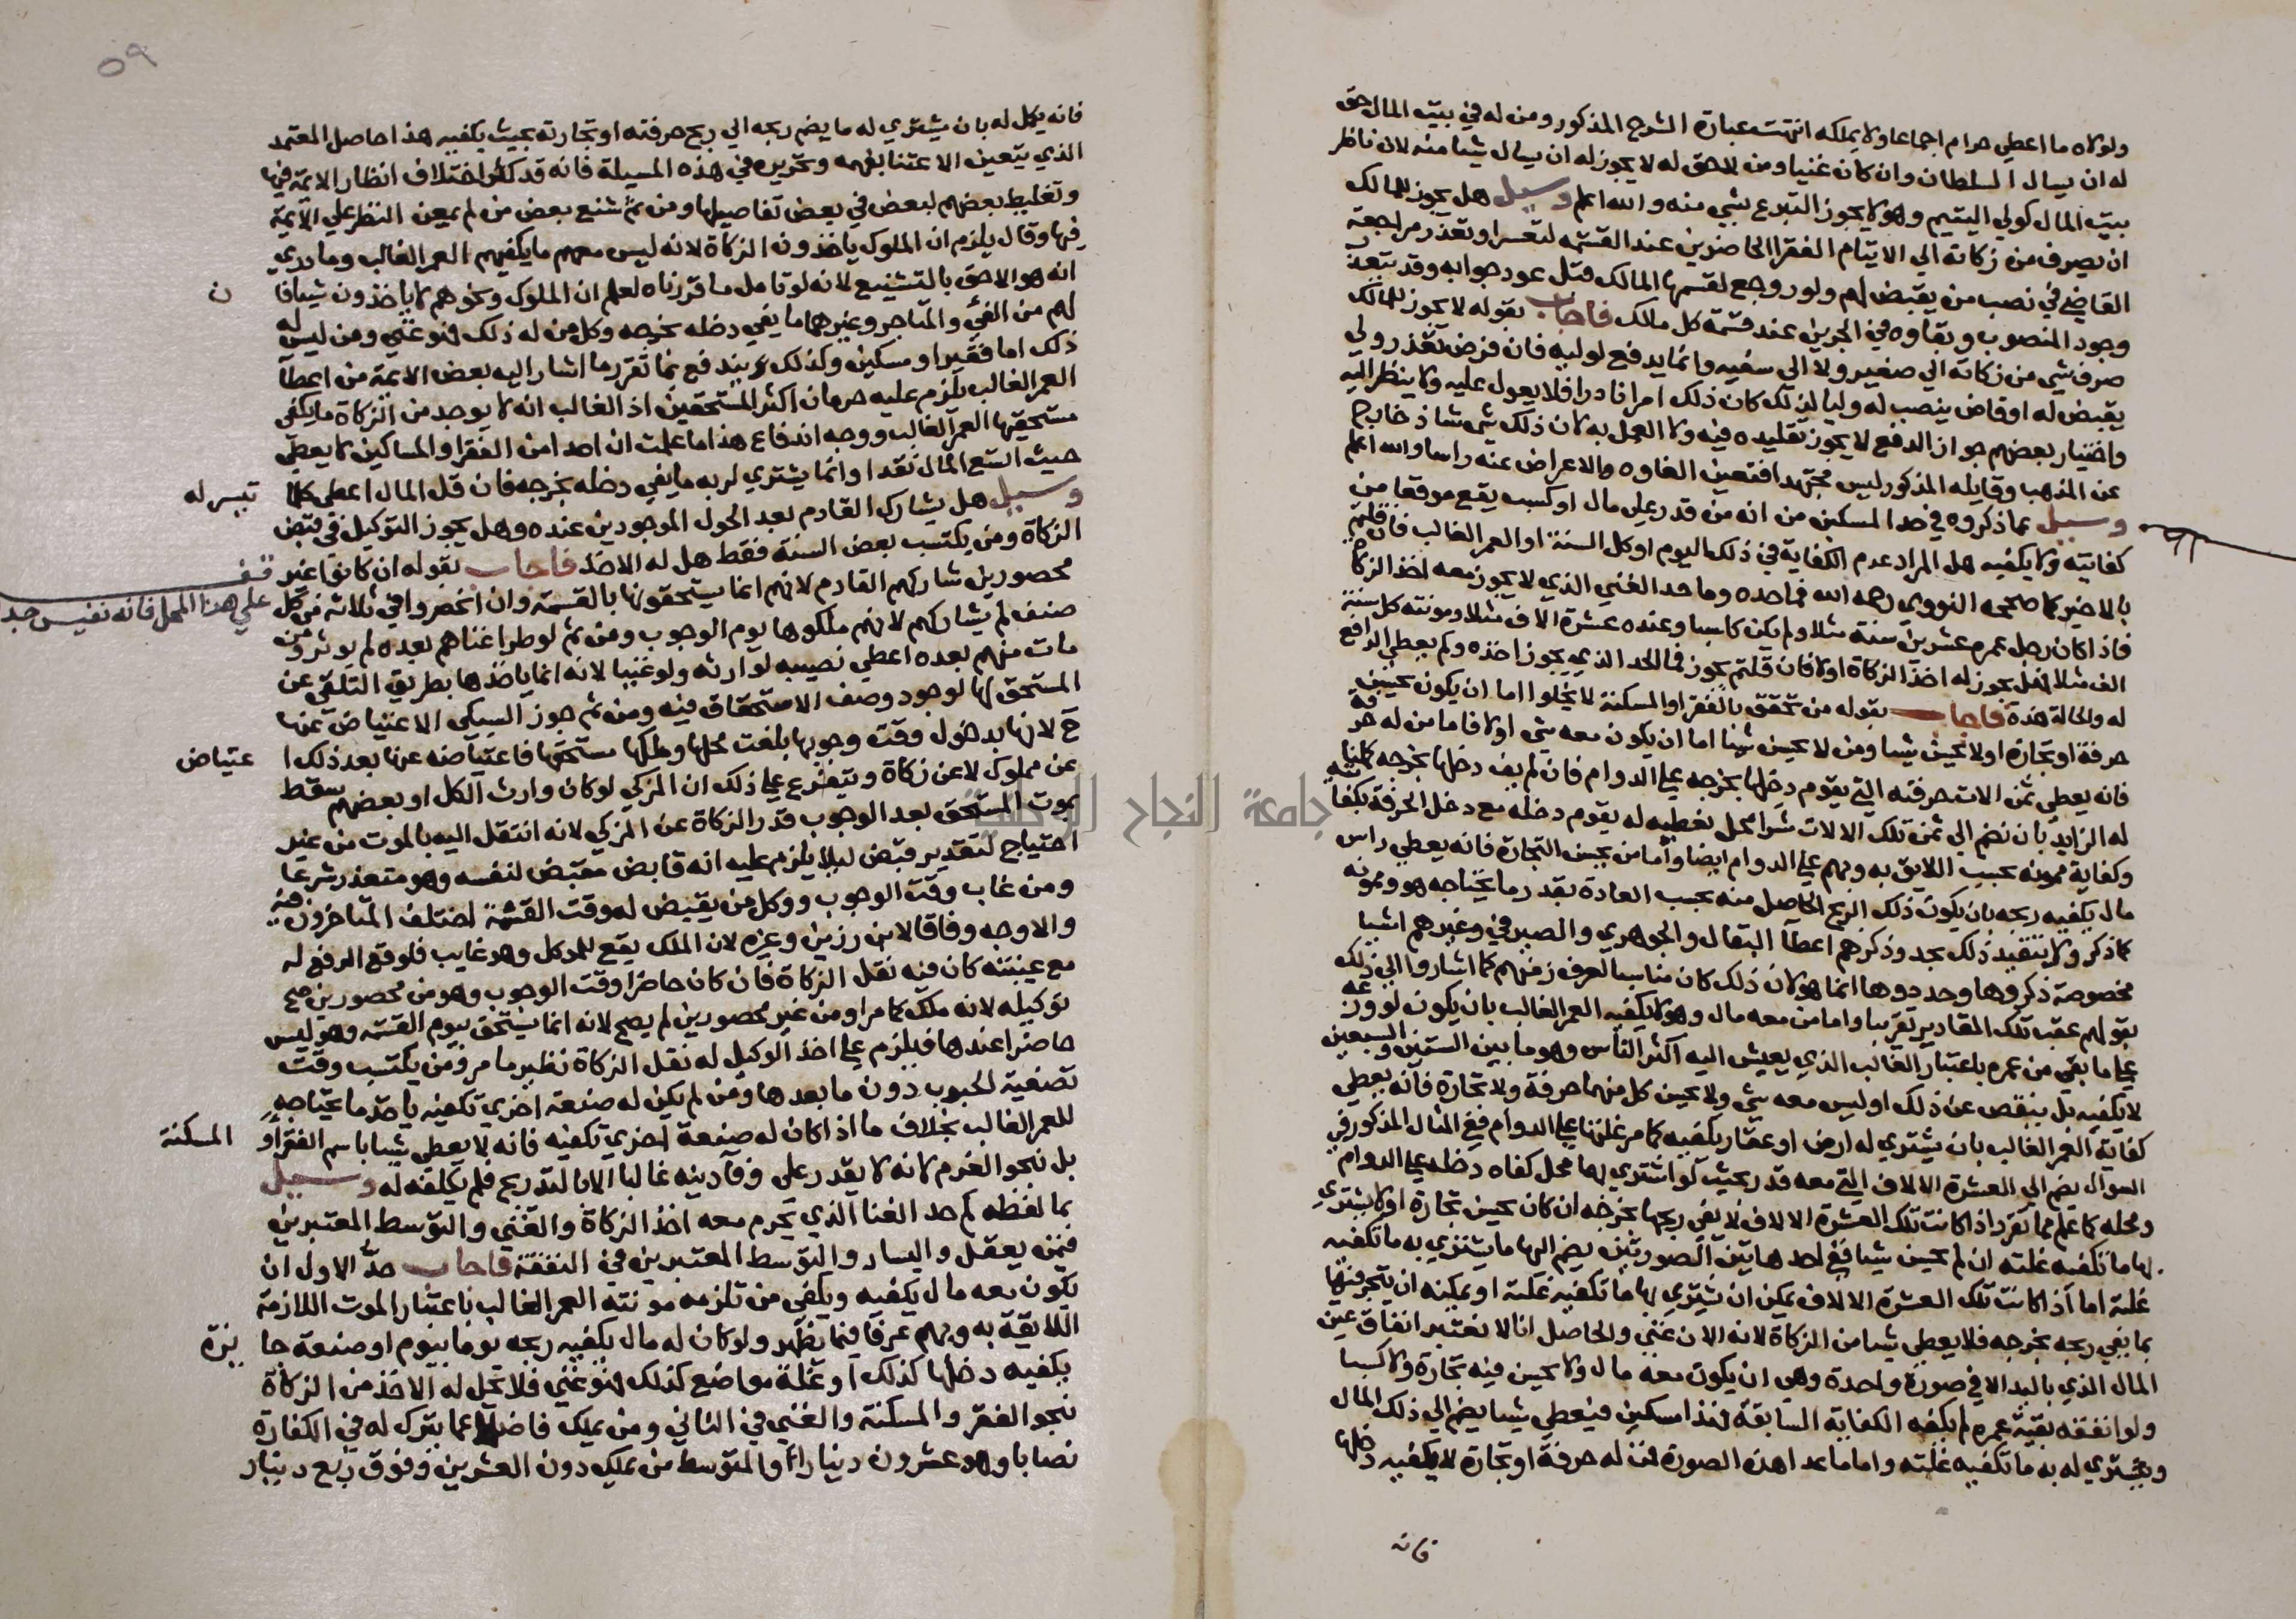 ولولاه ما اعطي حرام اجماعا ولا يملكه انتهت عبارة الشرح المذكور ومن له في بيت المال حق
له ان يسال السلطان وان كان غنيا ومن لاحق له لا يجوز له ان يسال شيا منه لان ناظر
بيت المال كولي اليتيم وهو لا يجوز التبرع بشي منه والله اعلم وسيل هل يجوز للمالك
ان يصرف من زكاته الي الايتام الفقرا الحاضرين عند القسمة لتعسر او تعذر مراجعة
القاضي في نصب من يقبض لهم ولو روجع لقسمها المالك قبل عود جوابه وقد يتعذر
وجود المنصوب وبقاوه في الجرين عند قسمة كل مالك فاجاب بقوله لا يجوز للمالك
صرف شي من زكاته الي صغير ولا الي سفيه وانما يدفع لوليه فان فرض تعذر ولي
يقبض له او قاض ينصب له وليا لذلك كان ذلك امرا نادرا فلا يعول عليه ولا ينظر اليه
واختيار بعضهم جواز الدفع لا يجوز تقليده فيه ولا العمل به لان ذلك شي شاذ خارج
عن المذهب وقايله المذكور ليس مجتهدا فتعين الغاوه والاعراض عنه راسا والله اعلم
وسيل عما ذكروه في حد المسكين من انه من قدر علي مال او كسب يقع موقعا من
كفايته ولا يكفيه هل المراد عدم الكفاية في ذلك اليوم او كل السنة او العمر الغالب فان قلتم
بالاخير كما صححه النووي رحمه الله فما حده وما حد الغني الذي لا يجوز معه اخذ الزكاة
فاذا كان رجل عمره عشرين سنة مثلا ولم يكن كاسبا وعنده عشرة الاف مثلا ومونته كل سنة
الف مثلا فهل يجوز له اخذ الزكاة اولا فان قلتم يجوز فما الحد الذي يجوز اخذه وكم يعطي الدافع
له والحالة هذه فاجاب بقوله من تحقق بالفقر او المسكنة لا يخلوا اما ان يكون يحسن
حرفة او تجارة او لا يحسن شيا ومن لا يحسن شيا اما ان يكون معه شي اولا فاما من له حرفة
فانه يعطي ثمن الات حرفته التي يقوم دخلها بخرجه علي الدوام فان لم يف دخلها بخرجه كملنا
له الزايد بان نضم الي ثمن تلك الالات شرا محل نعطيه له يقوم دخله مع دخل الحرفة بكفايته
وكفاية ممونه بحسب اللايق به وبهم علي الدوام ايضا واما من يحسن التجارة فانه يعطي راس
مال يكفيه ربحه بان يكون ذلك الربح الحاصل منه بحسب العادة بقدر ما يحتاجه هو وممونه
كما ذكر ولا نتقيد ذلك بحد وذكرهم اعطا البقال والجوهري والصيرفي وغيرهم اشيا
مخصوصة ذكروها وحددوها انما هو لان ذلك كان مناسبا لعرف زمنهم كما اشاروا الي ذلك
بقولهم عقب تلك المقادير تقريبا واما من معه مال وهو لا يكفيه العمر الغالب بان يكون لو وزعه
علي ما بقي من عمره باعتبار الغالب الذي يعيش اليه اكثر الناس وهو ما بين الستين والسبعين
لا يكفيه بل ينقص عن ذلك او ليس معه شي ولا يحسن كل منهما حرفة ولا تجارة فانه يعطي
كفاية العمر الغالب بان يشتري له ارض او عقار يكفيه كما مر غلتها علي الدوام ففي المثال المذكور في
السوال يضم الي العشرة الالاف التي معه قدر بحيث لو اشتري بها محل كفاه دخله علي الدوام
ومحله كما علم مما تقرر اذا كانت تلك العشرة الالاف لا يفي ربحها بخرجه ان كان يحسن تجارة او لا يشتري
بها ما تكفيه غلته ان لم يحسن شيا ففي احد هاتين الصورتين يضم اليها ما يشتري به ما تكفيه
غلته اما اذا كانت تلك العشرة الالاف يمكن ان يشتري بها ما تكفيه غلته او يمكنه ان يتجر فيها
بما يفي ربحه بخرجه فلا يعطي شيا من الزكاة لانه الان غني والحاصل انا لا نعتبر انفاق عين
المال الذي باليد الا في صورة واحدة وهي ان يكون معه مال ولا يحسن فيه تجارة ولا كسبا
ولو انفقه بقية عمره لم يكفه الكفاية السابقة فهذا مسكين فيعطي شيا يضم الي ذلك المال
ويشتري له به ما تكفيه غلته واما ما عدا هذه الصورة فمن له حرفة او تجارة لا يكفيه دخلها
فانه
٥٩
فانه يكمل له بان يشتري له ما يضم ربحه الي ربح حرفته او تجارته بحيث يكفيه هذا حاصل المعتمد
الذي يتعين الاعتنا بفهمه وتحريره في هذه المسيلة فانه قد كثر اختلاف انظار الايمة فيها
وتغليط بعضهم لبعض في بعض تفاصيلها ومن ثم شنع بعض من لم يمعن النظر علي الايمة
فيها وقال يلزم ان الملوك ياخذون الزكاة لانه ليس معهم ما يكفيهم العمر الغالب وما دري
انه هو الاحق بالتشنيع لانه لو تامل ما قررناه لعلم ان الملوك ونحوهم لا ياخذون شيا فا ن
لهم من الفي والمتاجر وغيرهما ما يفي دخله بخرجه وكل من له ذلك فهو غني ومن ليس له
ذلك اما فقير او مسكين وكذلك يندفع بما تقرر ما اشار اليه بعض الايمة من اعطا
العمر الغالب يلزم عليه حرمان اكثر المستحقين اذ الغالب انه لا يوجد من الزكاة ما يكفي
مستحقيها العمر الغالب ووجه اندفاع هذا ما علمت ان احدا من الفقرا والمساكين لا يعطي
حيث اتسع المال نقدا وانما يشتري لربه ما يفي دخله بخرجه فان قل المال اعطي كلا ما تيسر له
وسيل هل يشارك القادم بعد الحول الموجودين عنده وهل يجوز التوكيل في قبض
الزكاة ومن يكتسب بعض السنة فقط هل له الاخذ فاجاب بقوله ان كانوا غير
قف علي هذا المحل فانه نفيس جدا
محصورين شاركهم القادم لانهم انما يستحقونها بالقسمة وان انحصروا في ثلاثة من كل
صنف لم يشاركهم لانهم ملكوها يوم الوجوب ومن ثم لو طرا غناهم بعده لم يوثر ومن
مات منهم بعده اعطي نصيبه لوارثه ولو غنيا لانه انما ياخذها بطريق التلقي عن
المستحق لها لوجود وصف الاستحقاق فيه ومن ثم جوز السبكي الاعتياض عنها
ح لانها بدخول وقت وجوبها بلغت محلها وملكها مستحقها فاعتياضه عنها بعد ذلك ا عتياض
عن مملوك لا عن زكاة ويتفرع علي ذلك ان المزكي لو كان وارث الكل او بعضهم سقط
بموت المستحق بعد الوجوب قدر الزكاة عن المزكي لانه انتقل اليه بالموت من غير
احتياج لتقدير قبض ليلا يلزم عليه انه قابض مقبض لنفسه وهو متعذر شرعا
ومن غاب وقت الوجوب ووكل من يقبض له وقت القسمة اختلف المتاخرون فيه
والاوجه وفاقا لابن رزين وغيره لان الملك يقع للموكل وهو غايب فلو وقع الدفع له
مع غيبته كان فيه نقل الزكاة فان كان حاضرا وقت الوجوب وهو من محصورين صح
توكيله لانه ملك كما مر او من غير محصورين لم يصح لانه انما يستحق بيوم القسمة وهو ليس
حاضرا عندها فيلزم علي اخذ الوكيل له نقل الزكاة نظير ما مر ومن يكتسب وقت
تصفية الحبوب دون ما بعدها ومن لم يكن له صنعة اخري تكفيه ياخذ ما يحتاجه
للعمر الغالب بخلاف ما اذا كان له صنعة اخري تكفيه فانه لا يعطي شيا باسم الفقر او المسكنة
بل نحو الغرم لانه لا يقدر علي وفا دينه غالبا الا بالتدريج فلم يكلفه له وسيل
بما لفظه لم حد الغنا الذي يحرم معه اخذ الزكاة والغني والتوسط المعتبرين
فيمن يعقل واليسار والتوسط المعتبرين في النفقة فاجاب حد الاول ان
يكون معه مال يكفيه ويكفي من تلزمه مونته العمر الغالب باعتبار الموت اللازمة
اللايقة به وبهم عرفا فيما يظهر ولو كان له مال يكفيه ربحه يوما بيوم او صنعة جا يزة
يكفيه دخلها كذلك او غلة مواضع كذلك فهو غني فلا تحل له الاخذ من الزكاة
نحو الفقر والمسكنة والغني في الثاني ومن يملك فاضلا عما يترك له في الكفارة
نصابا وهو عشرون دينارا والمتوسط من يملك دون العشرين وفوق ربع دينار
جامعة النجاح الوطنية